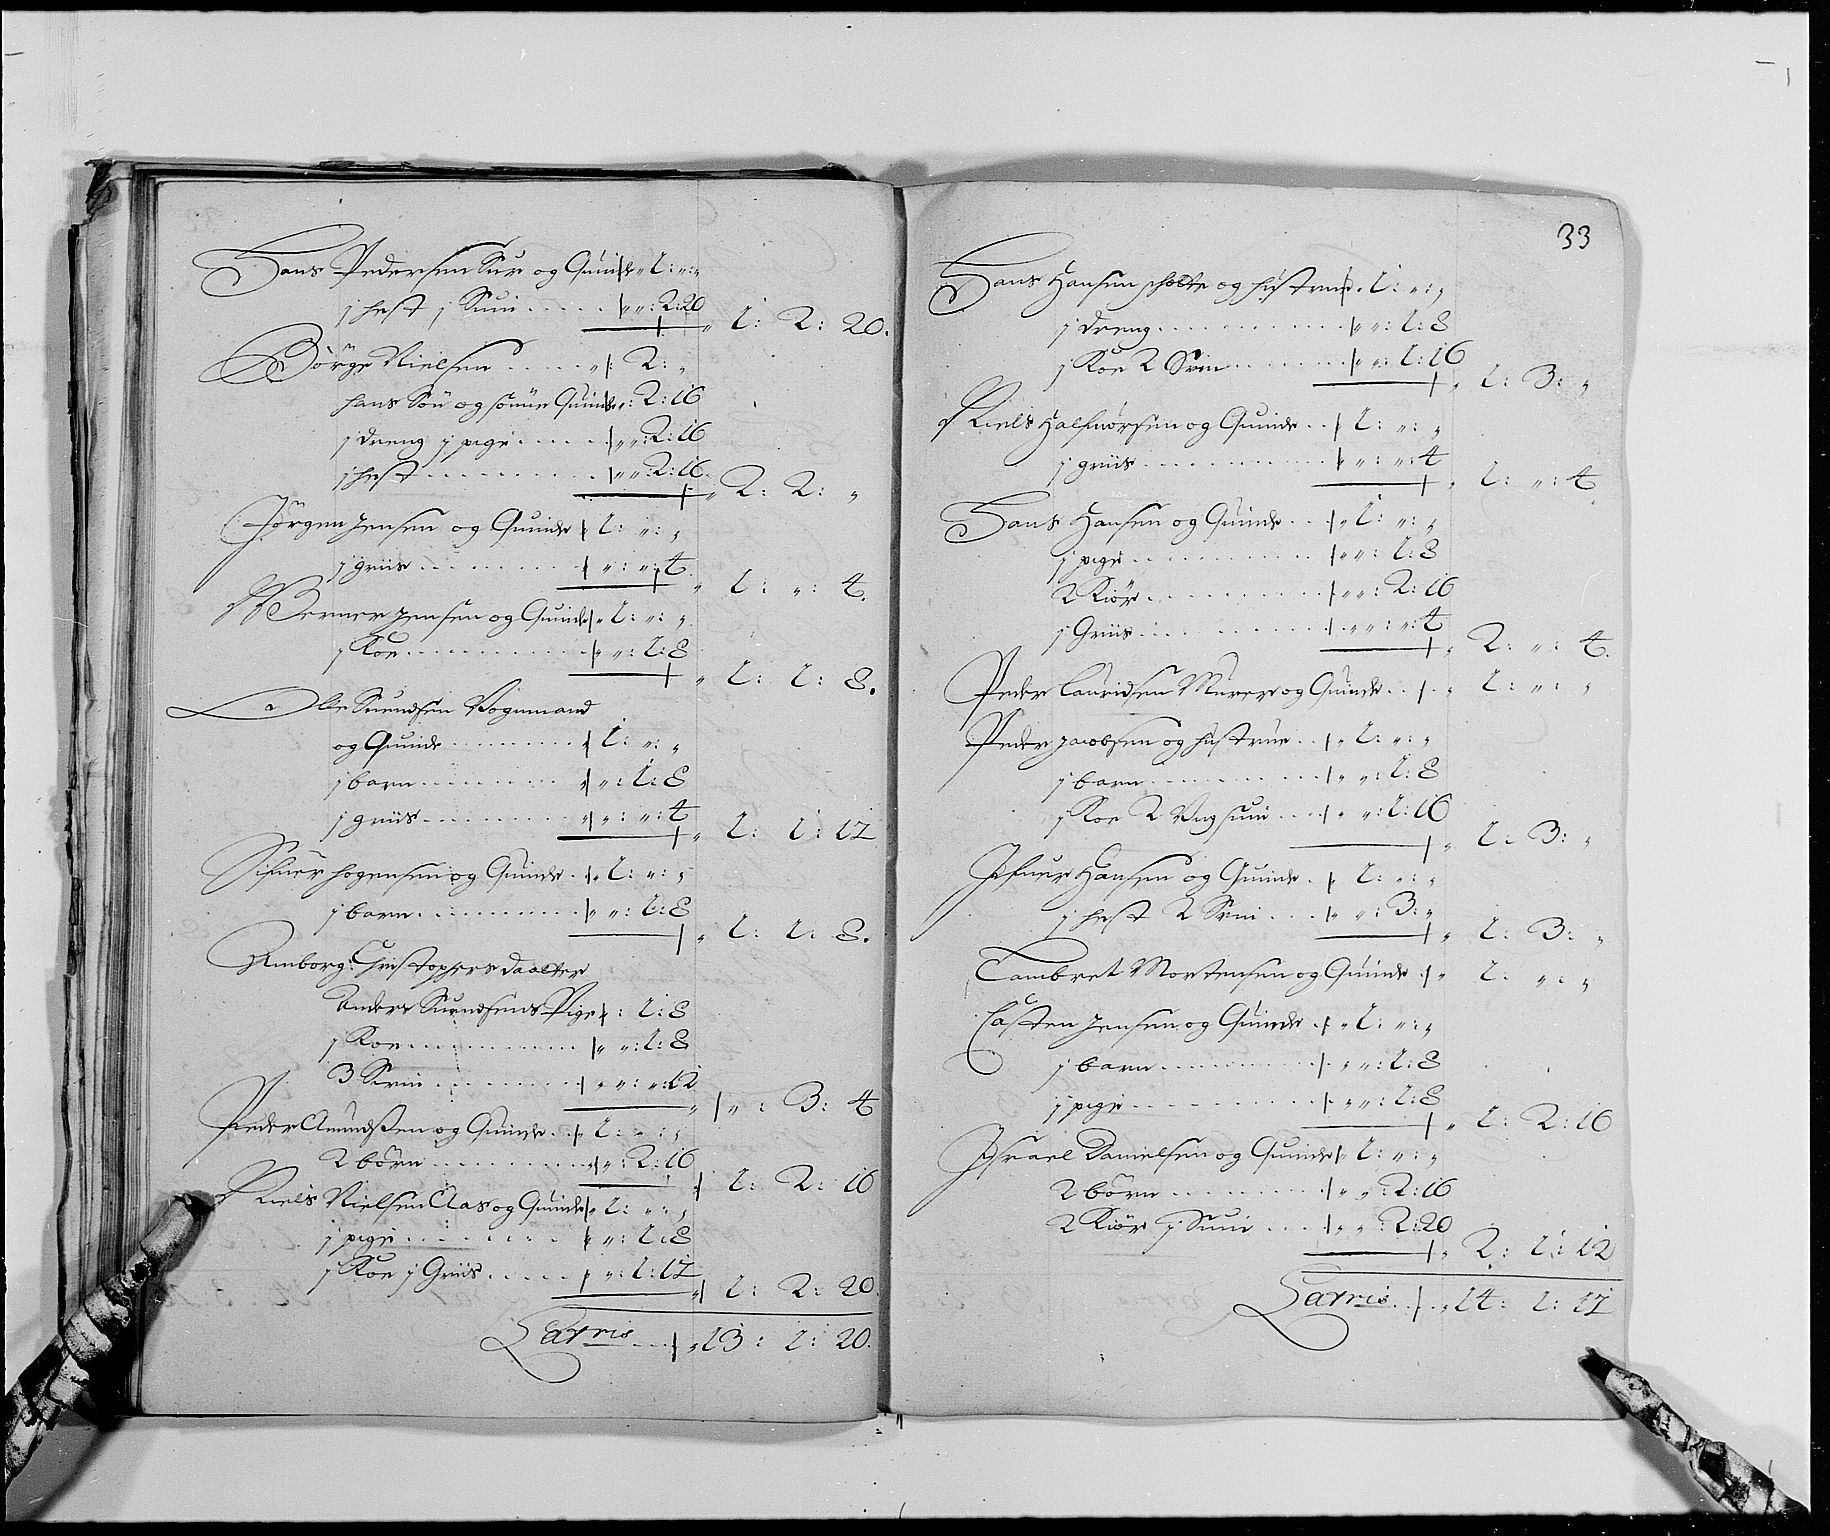 Hans Pedersen Sur og Quinde „ 1: „: „
j hest j Suin ..... „: 2: 20
„ 1: 2: 20.
Börge Nielsen ..... „ 2: „
hans Sön og sönne Quinde „: 2: 16
j dreng j pige ..... „: 2: 16
j hest ..... „: 2: 16
„ 2: 2: „
Jörgen Jensen og Quinde 1: „: „
j griis ..... „: „: 4
„ 1: „: 4.
Werner Jensen og Quinde „ 1: „: „
j Koe ..... „: 1: 8
„ 1: 1: 8.
Ole Suendsen Vognmand
og Quinde ..... 1: „: „
j barn ..... „: 1: 8
j griis ..... „: „: 4
„ 1: 1: 12
Sifuer hogensen og Quinde „ 1: „: „
j barn ..... „: 1: 8
„ 1: 1: 8.
Christophers daatter
Anders Suendsens Pige : 1: 8
j Koe ..... „: 1: 8
3 Svin ..... „: „: 12
„: 3: 4
Peder Amundsen og Quinde .. 1: „: „
2 börn ..... „: 2: 16
1: 2: 16
Niels Nielsen Aas og Quinde 1: „: „
j pige ..... „: 1: 8
j Koe j Griis ..... „: 1: 12
1: 2: 20.
Larris .... „ 13: 1: 20.
33
Hans Hansen og hustrue . 1: „: „
j dreng ..... „: 1: 8
j Koe 2 Svin ..... „: 1: 16
„ 1: 3: „
Niels Halfuorsen og Quinde .. 1: „: „
j griis ..... „: „: 4
„ 1: „: 4.
Hans Hansen og Quinde ... „ 1: „: „
j pige ..... „: 1: 8
2 Kiör ..... „: 2: 16
j Griis ..... „: „: 4
„ 2: „: 4.
Peder Lauridsen Murer og Quinde .. „ 1: „: „
Peder Jacobsen og hustrue .. „ 1: „: „
j barn ..... „: 1: 8
j Koe 2 Ung suin .... „: 1: 16
„ 1: 3: „
Ifuer Hansen og Quinde . 1: „: „
j hest 2 Svin .... „: 3: „
„ 1: 3: „
Lambret Mortensen og Quinde . „ 1: „: „
Casten Jensen og Quinde . „ 1: „: „
j barn ..... „: 1: 8
j pige ..... „: 1: 8
„ 1: 2: 16
Israel Danielsen og Quinde „ 1: „: „
2 börn ..... „: 2: 16
2 Kiör j Suin .... „: 2: 20
„ 2: 1: 12
Larris ... „ 14: 1: 12